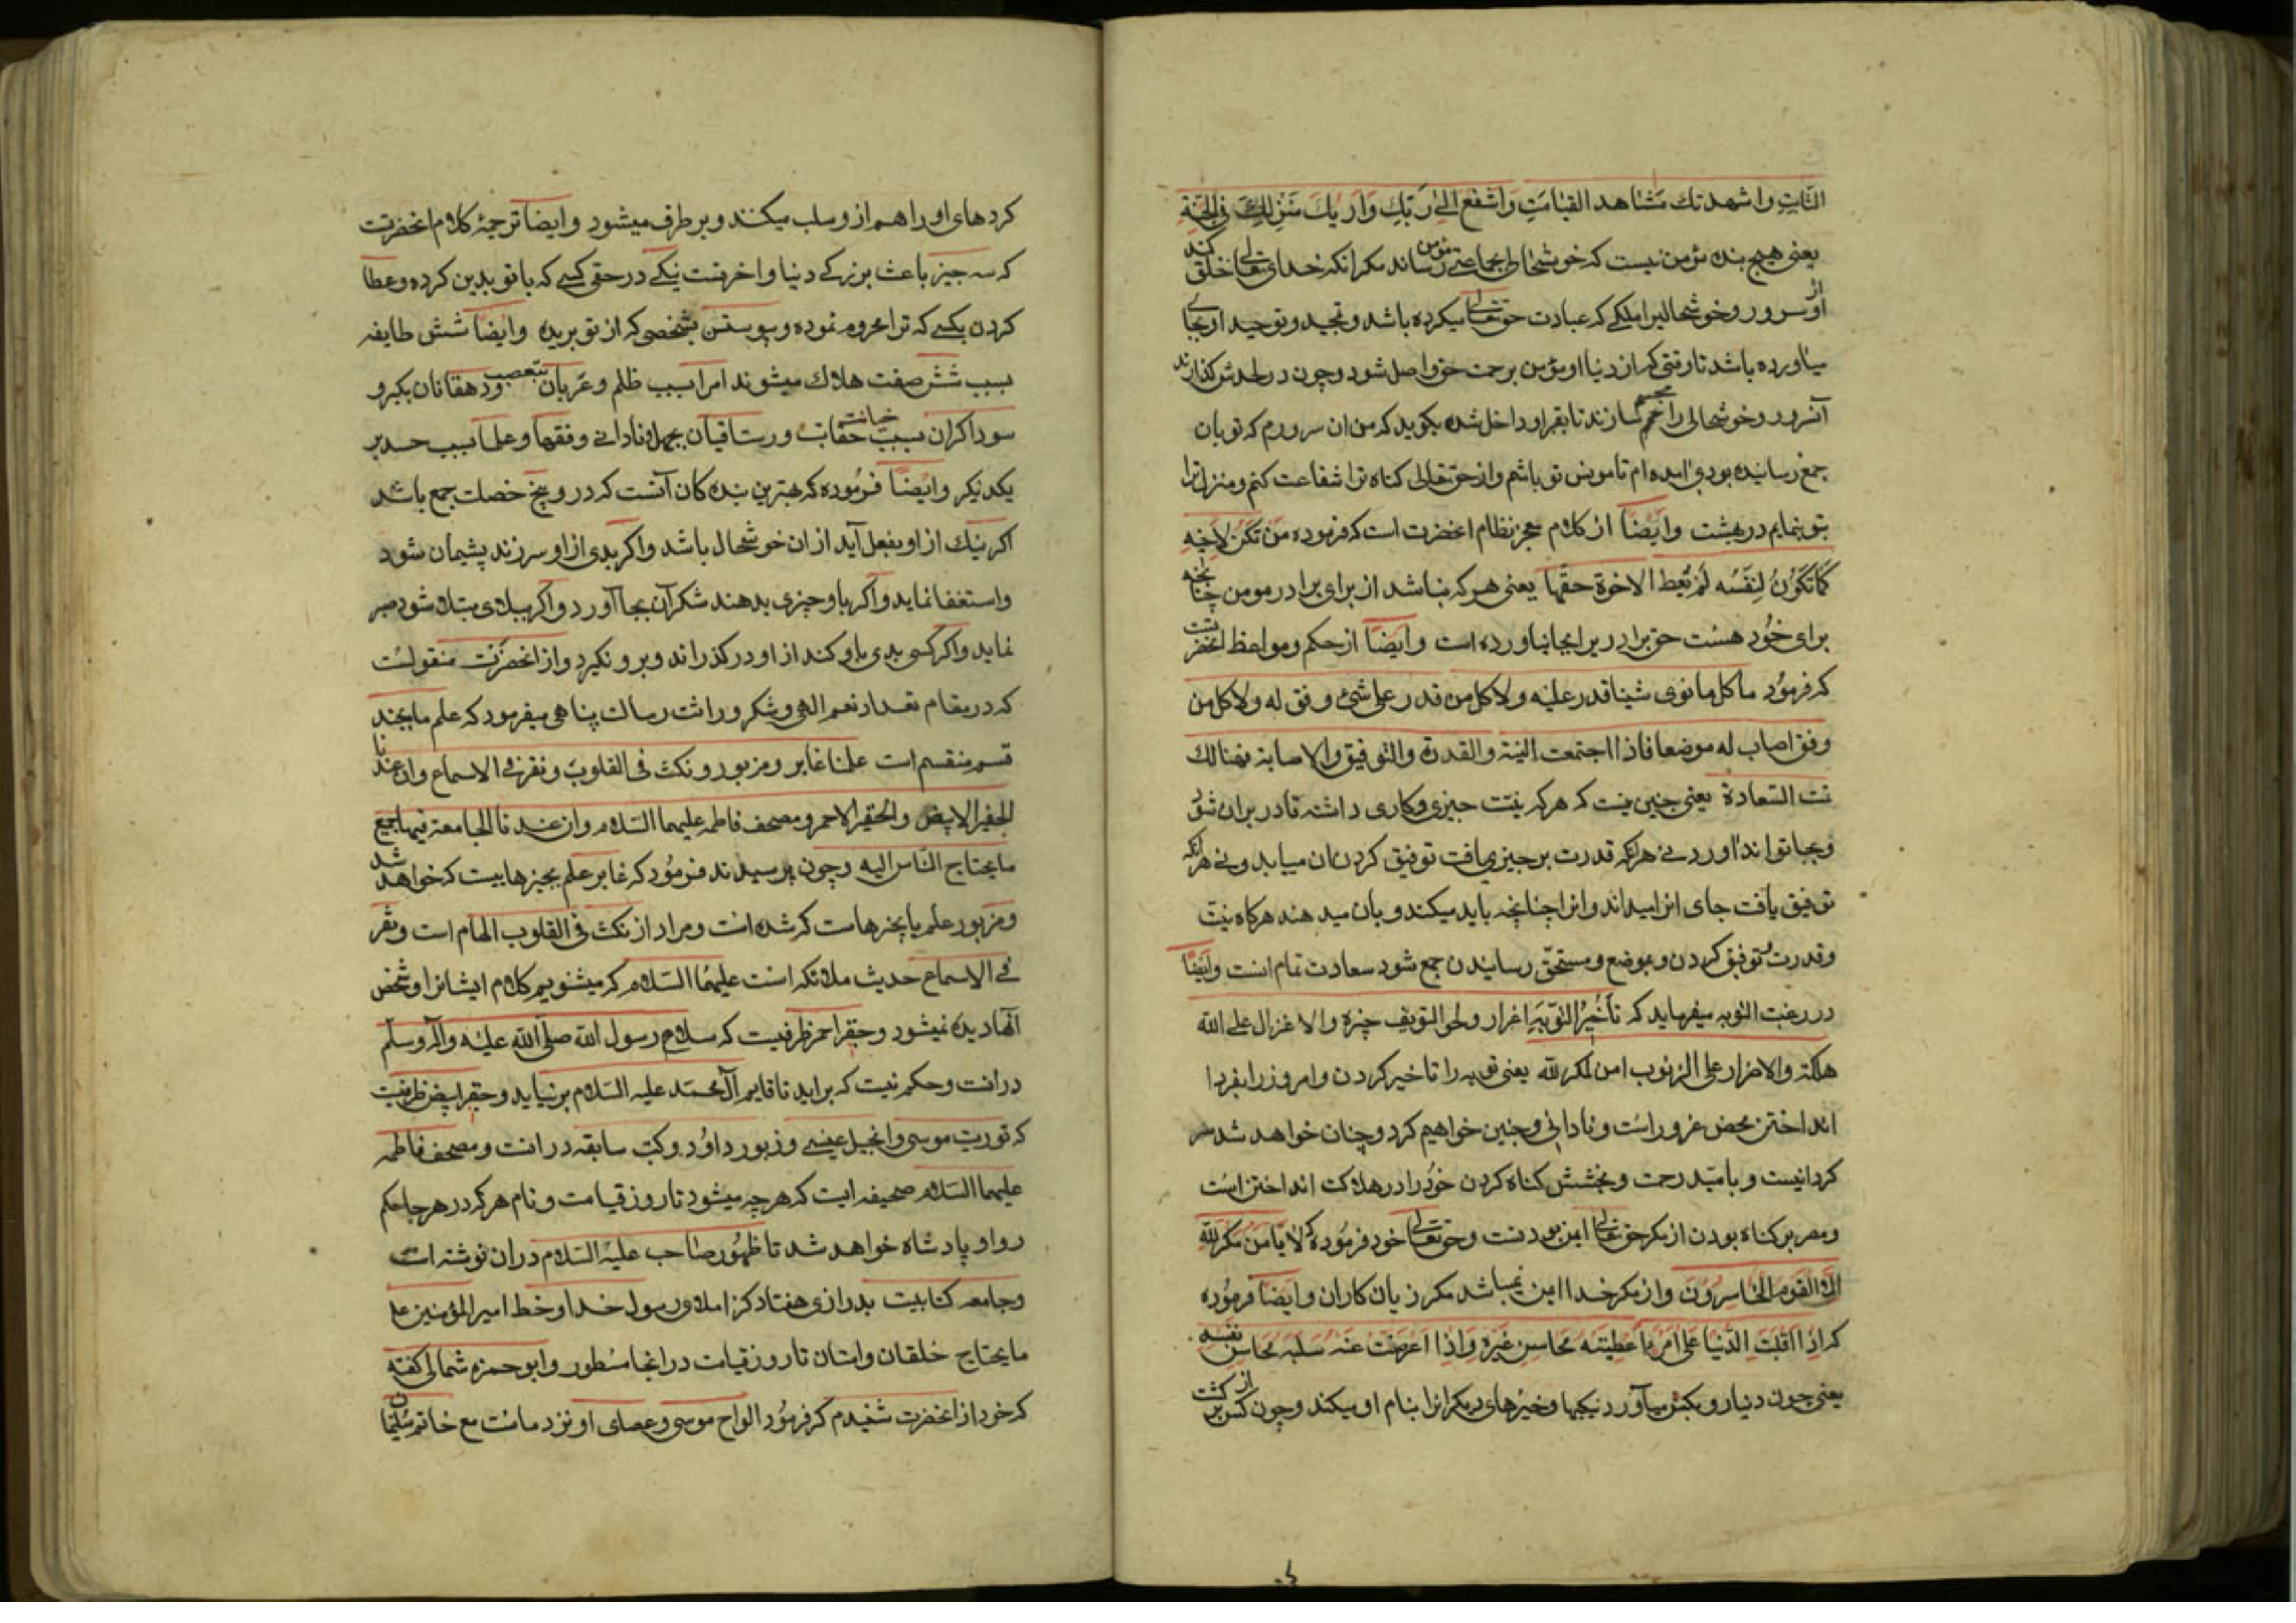 الثابت واشهد تك مشاهد القیامة واشفع الی ربك واریك منزلك فی الجنة
یعنی هیچ بنده مؤمن نیست که خوشحالی بجماعتی مؤمن رساند مکر انکه خدای تعالی خلق کند
از او سرور و خوشحالی املکی که عبادت حق تعالی میکرده باشد و تمجید و توحید او بجای
میاورده باشد تا وقتی که از دنیا او مؤمن برحمت حق واصل شود و چون در لحدش کذارند
آنسرور و خوشحالی را مجسم سازند تا بقبر او داخل شده بکوید که من ان سرورم که تو بان
جمع رسانیده بودی امده ام تا مونس تو باشم و از حق تعالی کناه ترا شفاعت کنم و منزل ترا
بتو بنمایم در بهشت وایضا از کلام معجز نظام انحضرت است که فرموده من لم تکن لاخیه
کما تکون لنفسه لم تعط الاخوة حقها یعنی هر که نباشد از برای برادر مومن چنانچه
برای خود هست حق برادری را بجا نیاورده است وایضا از حکم و مواعظ انحضرتست
که فرمود ما کل ما نوی شیئا قدر علیه ولا کل من قدر علی شئ وفق له ولا کل من
وفق اصاب له موضعا فاذا اجتمعت النیة والقدرة والتوفیق والاصابة فهنالك
تمت السعادة یعنی چنین نیست که هر که نیت چیزی و کاری داشته قادر بران شود
و بجا تواند اورد نی هر انکه قدرت بر چیزی یافت توفیق کردن ان میابد و نی هر انکه
توفیق یافت جای انرا میداند و انرا چنانچه باید میکند و بان میدهند هرکاه نیت
وقدرت و توفیق کردن و بموضع و مستحق رسانیدن جمع شود سعادت تمام انست وایضا
در رغبت التوبه میفرماید که تأخیر التوبة اغرار و طول التسویف حیرة والاعتزال علی الله
هلکة والاصرار علی الذنوب امن لمکر الله یعنی توبه را تاخیر کردن و امروز را بفردا
انداختن محض غرور است و نادانی و چنین خواهیم کرد و چنان خواهد شد سر
کردانیست و بامید رحمت و بخشش کناه کردن خود را در هلاکت انداختن است
ومصر بر کناه بودن از مکر حق تعالی ایمن بودنست و حق تعالی خود فرموده که لا یامن مکر الله
الا القوم الخاسرون و از مکر خدا ایمن نمیباشد مکر زیان کاران وایضا فرموده
که اذا اقبلت الدنیا علی امرء اعطیته محاسن غیره واذا اعرضت عنه سلبته محاسن نفسه
یعنی چون دنیا رو بکسی میآورد نیکیها و خیرهای دیکرانرا بنام او میکند و چون از کسی برکشت
کردهای او را هم از و سلب میکند و بر طرف میشود وایضا ترجمهٔ کلام انحضرتست
که سه چیز باعث بزرکی دنیا و اخرتست نیکی در حق کسی که با تو بدی کرده و عطا
کردن بکسی که ترا محروم نموده و پیوستن بشخصی که از تو بریده وایضا شش طایفه
بسبب شش صفت هلاك میشوند امرا بسبب ظلم و عربان بتعصب و دهقانان بکبر و
سوداکران بسبب خیانت و رستاقیان بجهل و نادانی و فقها و علما بسبب حسد بر
یکدیکر وایضا فرموده که بهترین بنده کان آنست که در و پنج خصلت جمع باشد
اکر نیك از او بفعل آید از ان خوشحال باشد و اکر بدی از او سرزند پشیمان شود
واستغفار نماید و اکر باو چیزی بدهند شکر آن بجا آورد و اکر ببلای مبتلا شود صبر
نماید و اکر کسی بدی باو کند از او درکذراند و برو نکیرد و از انحضرت منقولست
که در مقام تعداد نعم الهی و شکر وراثت رسالت پناهی میفرمود که علم ما بچند
قسم منقسم است علمنا غابر و مزبور و نکث فی القلوب و نقر فی الاسماع وان عندنا
الجفر الابیض والجفر الاحمر و مصحف فاطمه علیهما السلام وان عندنا الجامعة فیها جمیع
ما یحتاج الناس الیه و چون پرسیدند فرمود که غابر علم بچیزهاییست که خواهد شد
ومزبور علم بچیزهاست که شده است و مراد از نکث فی القلوب الهام است و نقر
فی الاسماع حدیث ملائکه است علیهم السلام که میشنویم کلام ایشانرا و شخص
آنها دیده نمیشود و جفر احمر ظرفیست که سلاح رسول الله صلی الله علیه واله وسلم
درانست و حکم نیست که براید تا قایم آل محمد علیه السلام برنیاید و جفر ابیض ظرفیست
که توریت موسی و انجیل عیسی و زبور داود و کتب سابقه درانست و مصحف فاطمه
علیهما السلام صحیفه ایست که هر چه میشود تا روز قیامت و نام هر که در هر جا حکم
روا و پادشاه خواهد شد تا ظهور صاحب علیه السلام دران نوشته است
وجامعه کتابیست بدرازی هفتاد کز املای رسول خدا و خط امیر المؤمنین علی
ما یحتاج خلقان و امتان تا روز قیامت در انجا مسطور و ابو حمزه ثمالی کفته
که خود از انحضرت شنیدم که فرمود الواح موسی و عصای او نزد ماست مع خاتم سلیمان